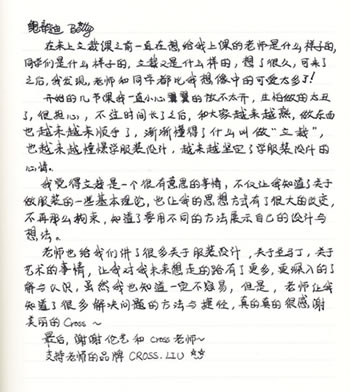 Betty
在未上立裁课之前一直在想给我上课的老师是什么样子的,
同学们是什么样子的,立裁又是什么样的,想了很久,可来了
之后,我发现,老师和同学都比我想像中的可爱太多了!
开始的几节课我一直小心翼翼的放不太开,生怕做的太丑
了,很担心,不过时间长了之后,和大家越来越熟,做东西
也越来越来顺手了,渐渐懂得了什么叫做“立裁”,
也越来越憧憬学服装设计,越来越坚定了学服装设计的
心情。
我觉得立裁是一个很有意思的事情,不仅让我知道了关于
做服装的一些基本理论,也让我的思想方式有了很大的改变,
不再那么拘束,知道了要用不同的方法展示自己的设计与
想法。
老师也给我们讲了很多关于服装设计,关于立马丁,关于
艺术的事情,让我对我未来想走的路有了更多,更深入的了
解与认识,虽然我也知道一定不容易,但是,老师让我
知道了很多解决问题的方法与捷径,真的真的很感谢
美丽的Cross~
最后,谢谢伦艺和cross老师~
支持老师的品牌 CROSS.LIU ☆☆